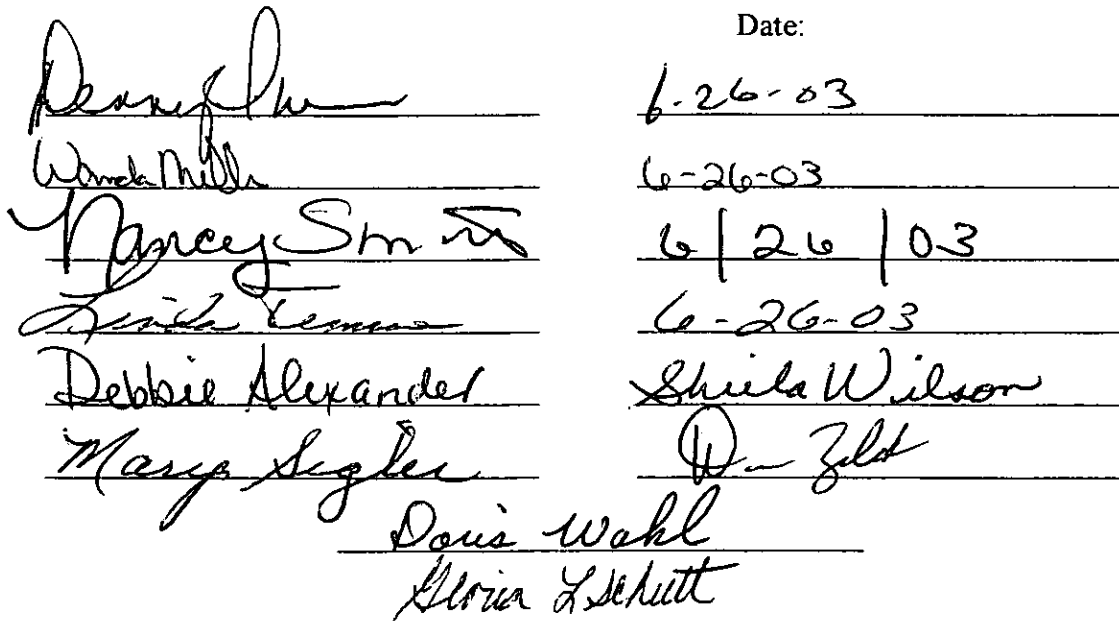 Date:
6-26-03
Wanda Mills 6-26-03
Nancy Smith 6/26/03
Linda 6-26-03
Debbie Alexander Sheila Wilson
Mary Sigler
Doris Wahl
Gloria L Schutt